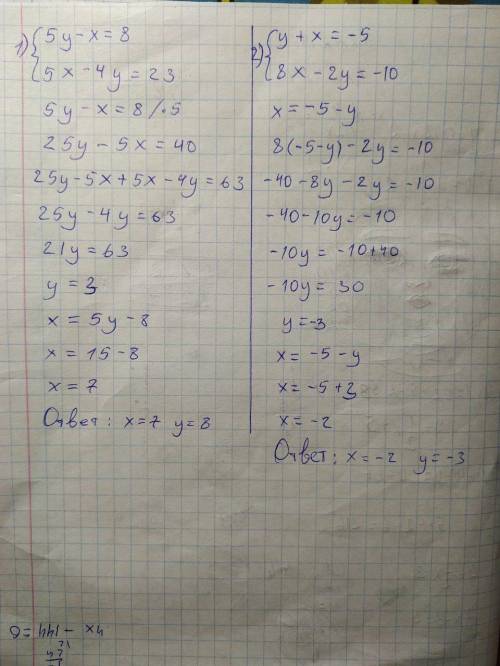 1) { 5y - x = 8
5x - 4y = 23
5y - x = 8 / · 5
25y - 5x = 40
25y - 5x + 5x - 4y = 63
25y - 4y = 63
21y = 63
y = 3
x = 5y - 8
x = 15 - 8
x = 7
Ответ: x = 7 y = 8
2) { y + x = -5
8x - 2y = -10
x = -5 - y
8(-5-y) - 2y = -10
-40 - 8y - 2y = -10
-40 - 10y = -10
-10y = -10 + 40
-10y = 30
y = -3
x = -5 - y
x = -5 + 3
x = -2
Ответ: x = -2 y = -3
4x - 144 = 0